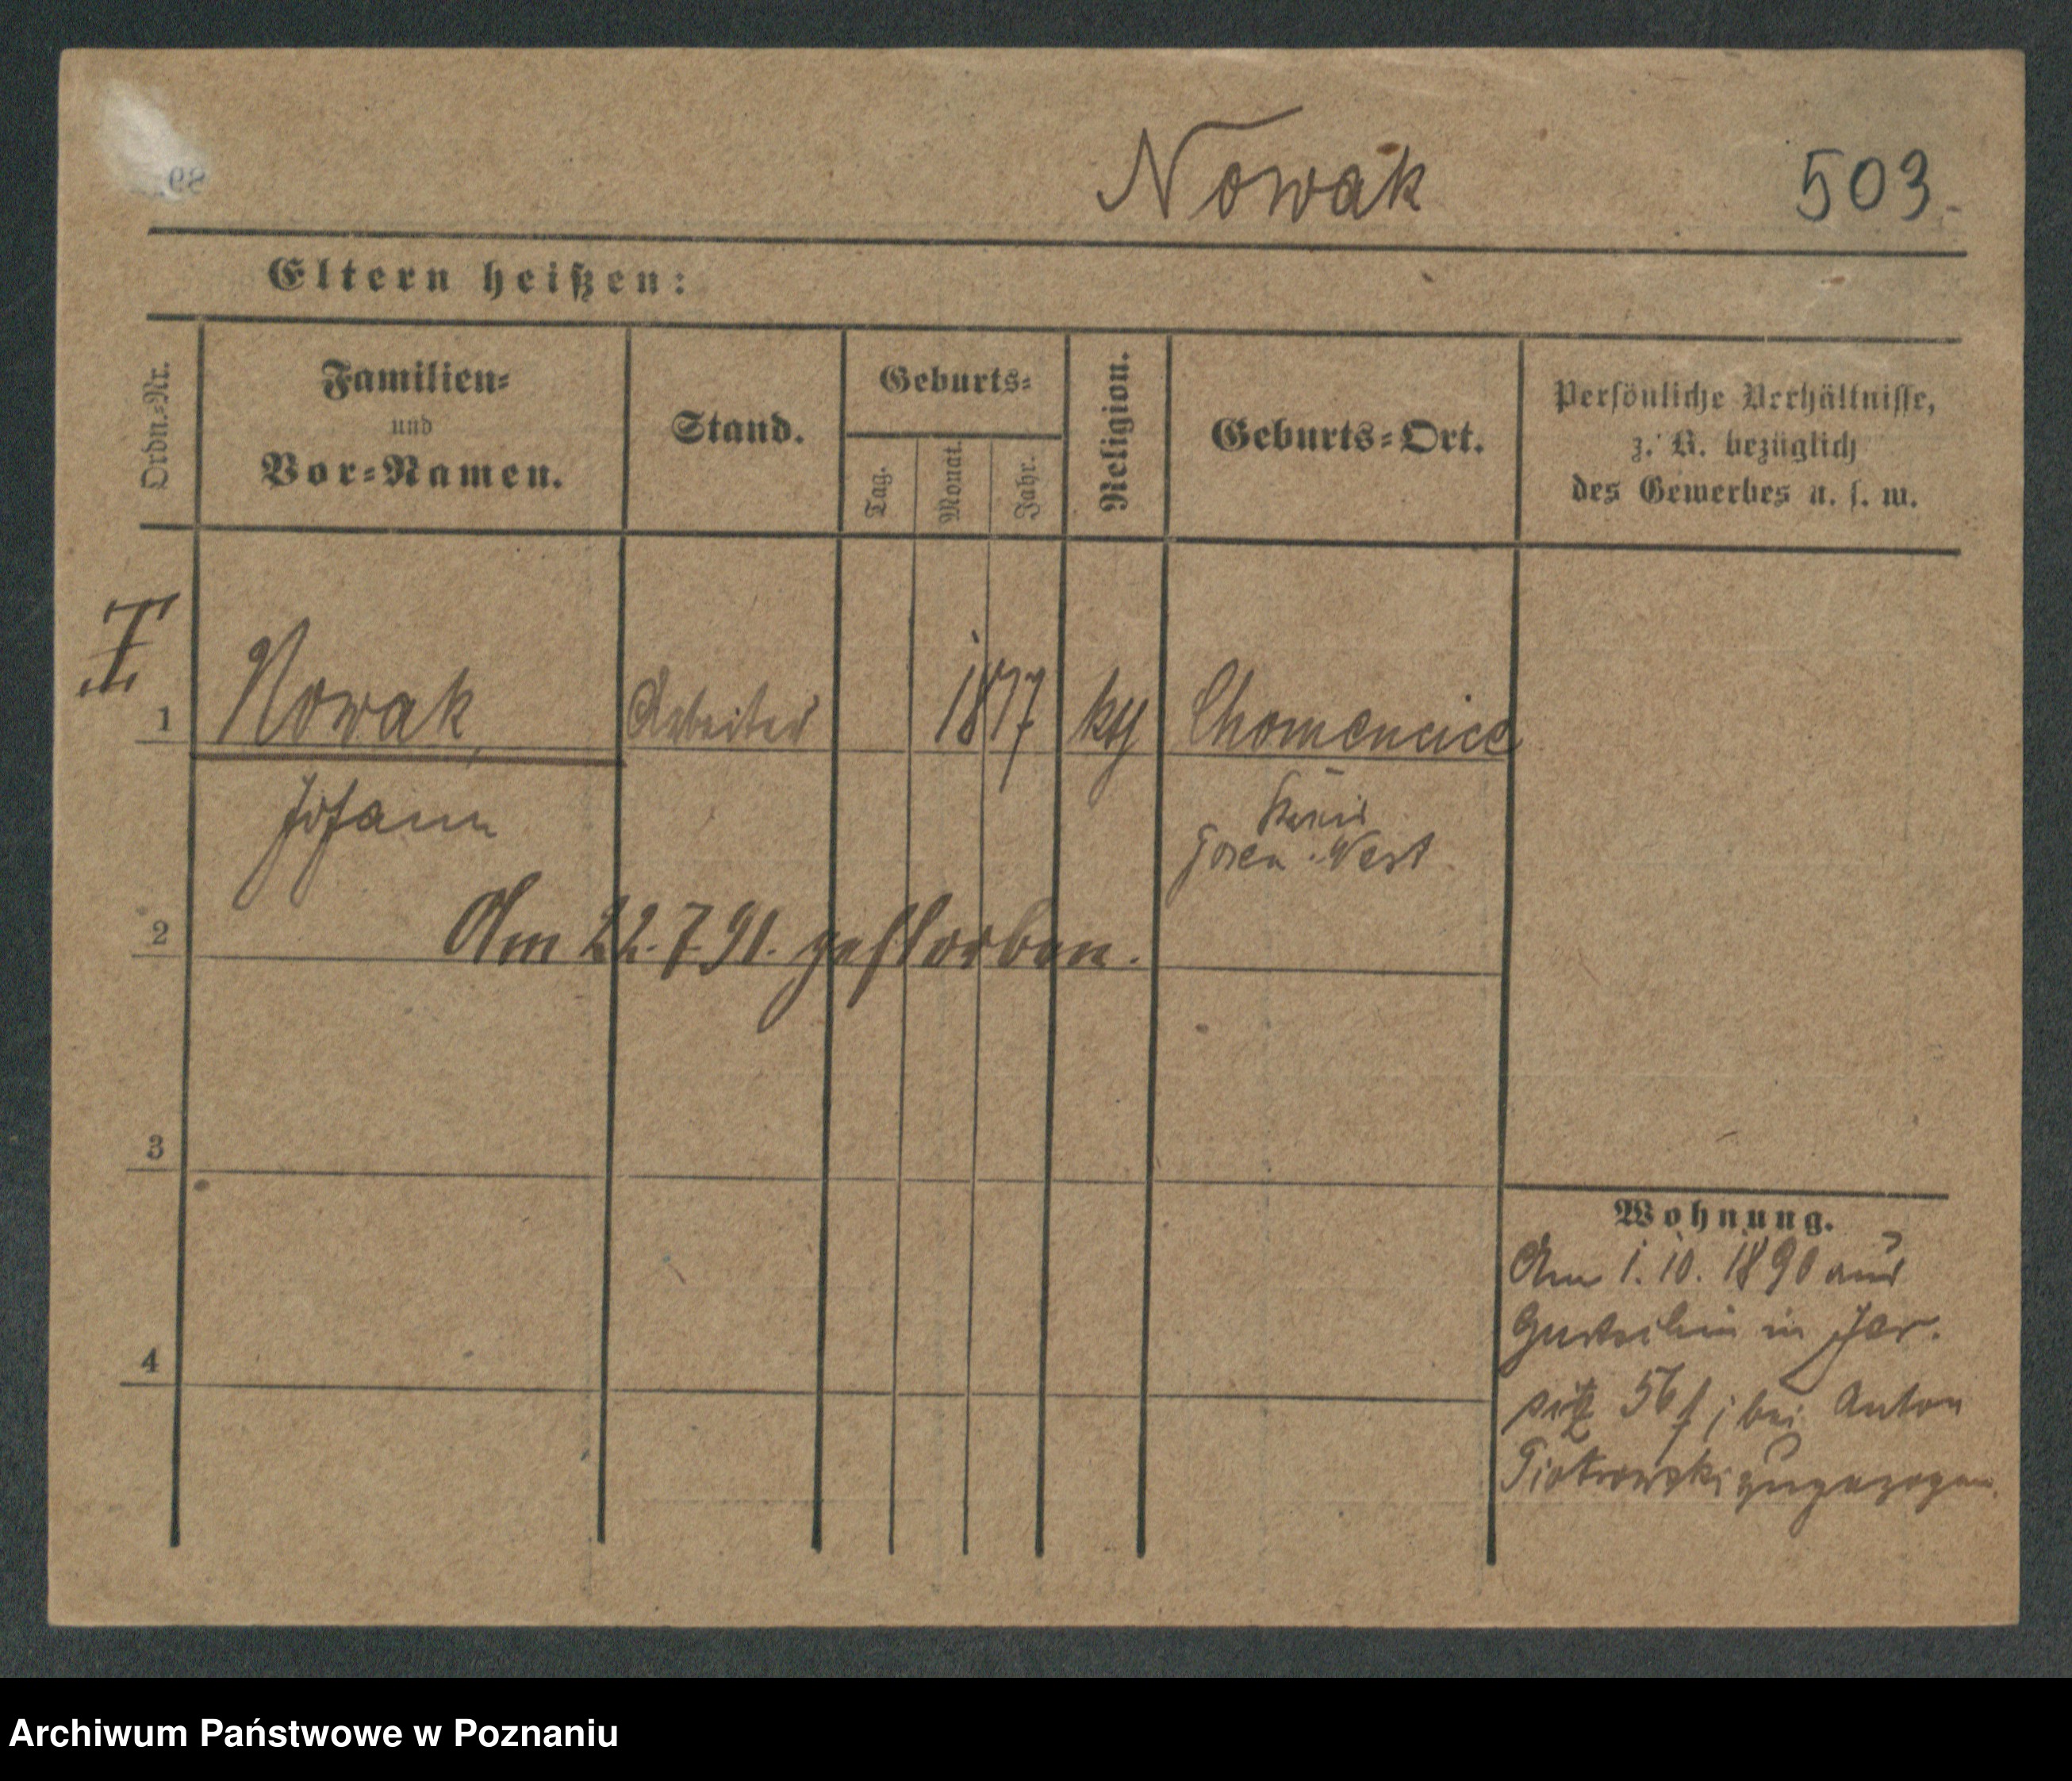 Nowak
503.
Eltern heißen:
Ordn.-Nr.
Familien-
und
Vor-Namen.
Stand.
Geburts-
Tag.
Monat.
Jahr.
Religion.
Geburts-Ort.
Persönliche Verhältnisse,
z. B. bezüglich
des Gewerbes u. s. w.
1
Nowak
Arbeiter
1877
Chomencice
Johann
Kreis
Posen-West
2
Am 22.7.91. gestorben.
3
4
Wohnung.
Am 1.10.1890 aus
in Jer.
sitz 56 f; bei Anton
Piotrowski zugezogen.
Archiwum Państwowe w Poznaniu